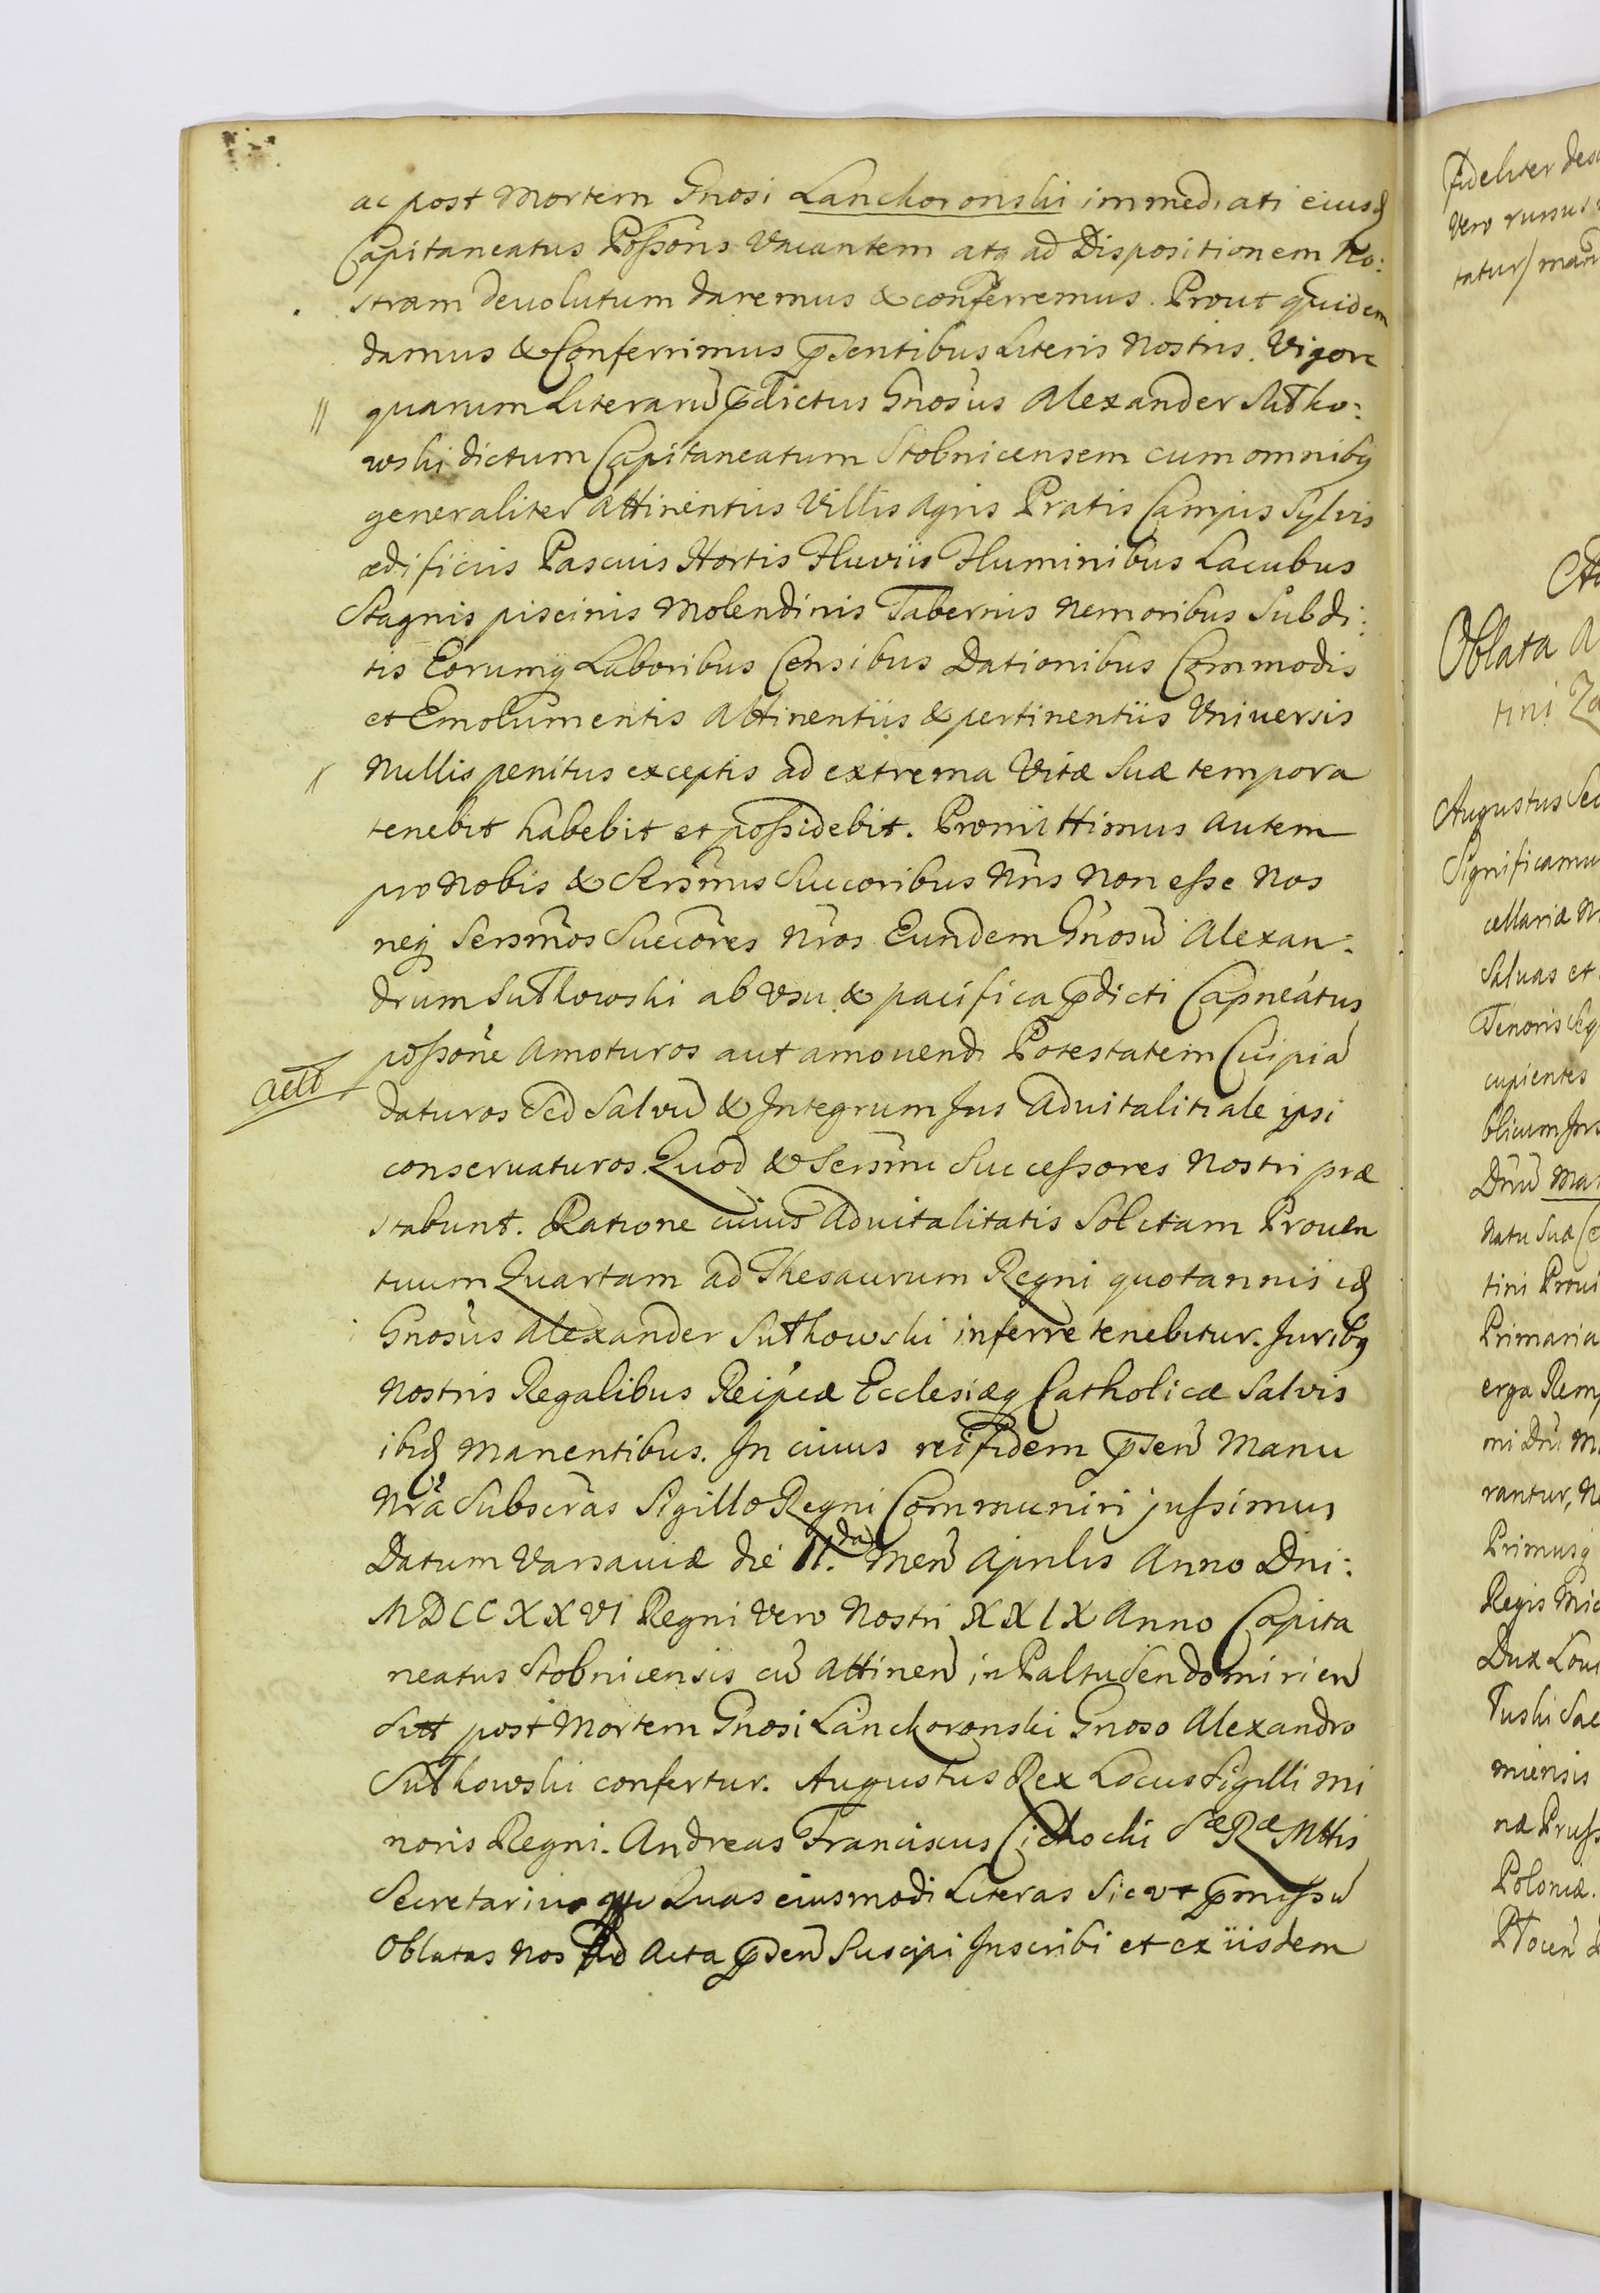 ac post Mortem Gnosi Lanckoronski immediati eiusd
Capitaneatus Possons Vacantem atq ad Dispositionem No:
stram devolutum daremus & conferremus. Prout quidem
damus & Conferrimus pñsentibus Literis Nostris. Vigore
quarum Literarū pdictus Gnosus Alexander Sutko:
wski dictum Capitaneatum Stobnicensem cum omnibq
generaliter Attinentiis Villis Agris Pratis Campis Sylvis
ædificiis Pascuis Hortis Fluviis Fluminibus Lacubus
Stagnis piscinis Molendinis Tabernis Nemoribus Subdi:
tis Eorumq Laboribus Censibus Dationibus Commodis
et Emolumentis Attinentiis & pertinentiis Universis
Nullis penitus exceptis ad extrema Vitæ Suæ tempora
tenebit habebit et possidebit. Promittimus autem
pro Nobis & Sersmis Succoribus Nris Non esse Nos
neq Sersmos Succores Nros Eundem Gnosū Alexan:
drum Sutkowski ab Vsu & pacifica pdicti Capneatus
possone Amoturos aut amovendi Potestatem Cuipiā
daturos Sed Salvū & Integrum Jus Advitalitiale ipsi
conservaturos. Quod & Sersmi Successores Nostri præ
stabunt. Ratione cuius Advitalitatis Solitam Proven
tuum Quartam ad Thesaurum Regni quotannis id
Gnosus Alexander Sutkowski inferre tenebitur. Juribq
Nostris Regalibus Reipcæ Ecclesiæq Catholicæ Salvis
ibid Manentibus. In cuius rei fidem pñsen Manu
Nra Subscras Sigillo Regni Communiri jussimus
Datum Varsaviæ die 11.da Men Aprilis Anno Dni:
MDCCXXVI Regni Vero Nostri XXIX Anno Capita
neatus Stobnicensis cū Attinen in Paltu Sendomirien
Sitt post Mortem Gnosi Lanckoronski Gnoso Alexandro
Sutkowski confertur. Augustus Rex Locus Sigilli mi
noris Regni. Andreas Franciscus Cichocki Sæ Ræ Mttis
Secretarius Quas eiusmodi Literas Sicut pmissū
Oblatas Nos Ad Acta pñsen Suscipi Inscribi et ex iisdem
fideliter
Vero rursus
tatur/
Oblata A
tini Za
Augustus Sec
Significamus
cellariæ
Salvas et
Tenoris Seq
cupientes
blicum Ins
Dnū
Natu Suæ
tini
Primaria
erga Remp
ni Dni
rantur,
Primusq
Regis Mic
Dux
miensis
næ Pruss
Poloniæ.